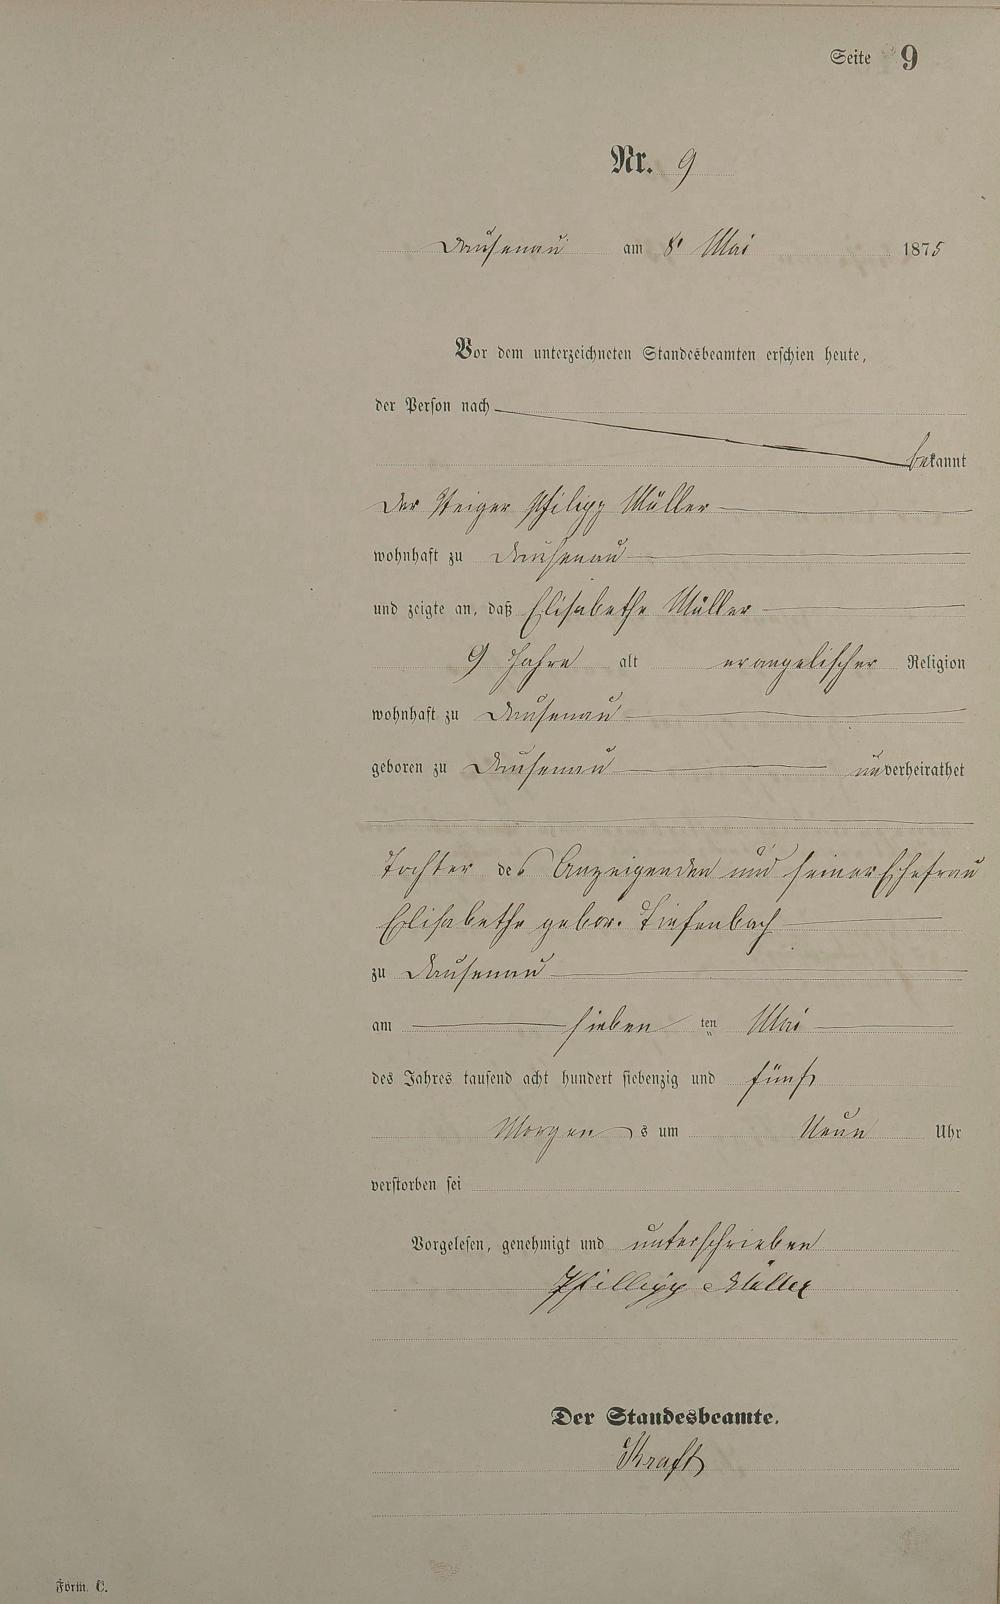 Seite 9
Nr. 9
Dausenau am 8t Mai 1875
Vor dem unterzeichneten Standesbeamten erschien heute,
der Person nach
bekannt
der Steiger Philipp Müller
wohnhaft zu Dausenau
und zeigte an, daß Elisabethe Müller
9 Jahre alt evangelischer Religion
wohnhaft zu Dausenau
geboren zu Dausenau unverheirathet
Tochter des Anzeigenden und seiner Ehefrau
Elisabethe gebor. Tiefenbach
zu Dausenau
am sieben ten Mai
des Jahres tausend acht hundert siebenzig und fünf
Morgen s um Neun Uhr
verstorben sei
Vorgelesen, genehmigt und unterschrieben
Phillipp Müller
Der Standesbeamte.
Kraft
Form. C.